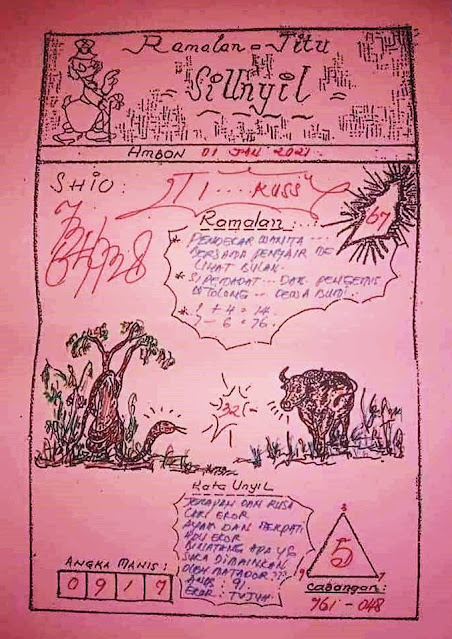 Ramalan = Jitu
Si Unyil
AMBON 01 JAN 2021
SHIO:
67
Ramalan....
* PENDEKAR WANITA ...
BERSAMA PENYAIR
LIHAT BULAN.
* SI PEMADAT... DAN PENGEMIS
DITOLONG ... DEWA BUMI.
* 1 + 4 = 14.
2 - 6 = 76.
32
Kata Unyil
JERAPAH DAN RUSA
CARI EKOR
AYAM DAN MERPATI
ADU EKOR
BINATANG APA YG
SUKA DIMAINKAN
OLEH MATADOR ???
ANGK: 91
EKOR: TUJUH.
ANGKA MANIS:
0 9 1 7
5
9 7
CABANGAN:
961 - 048